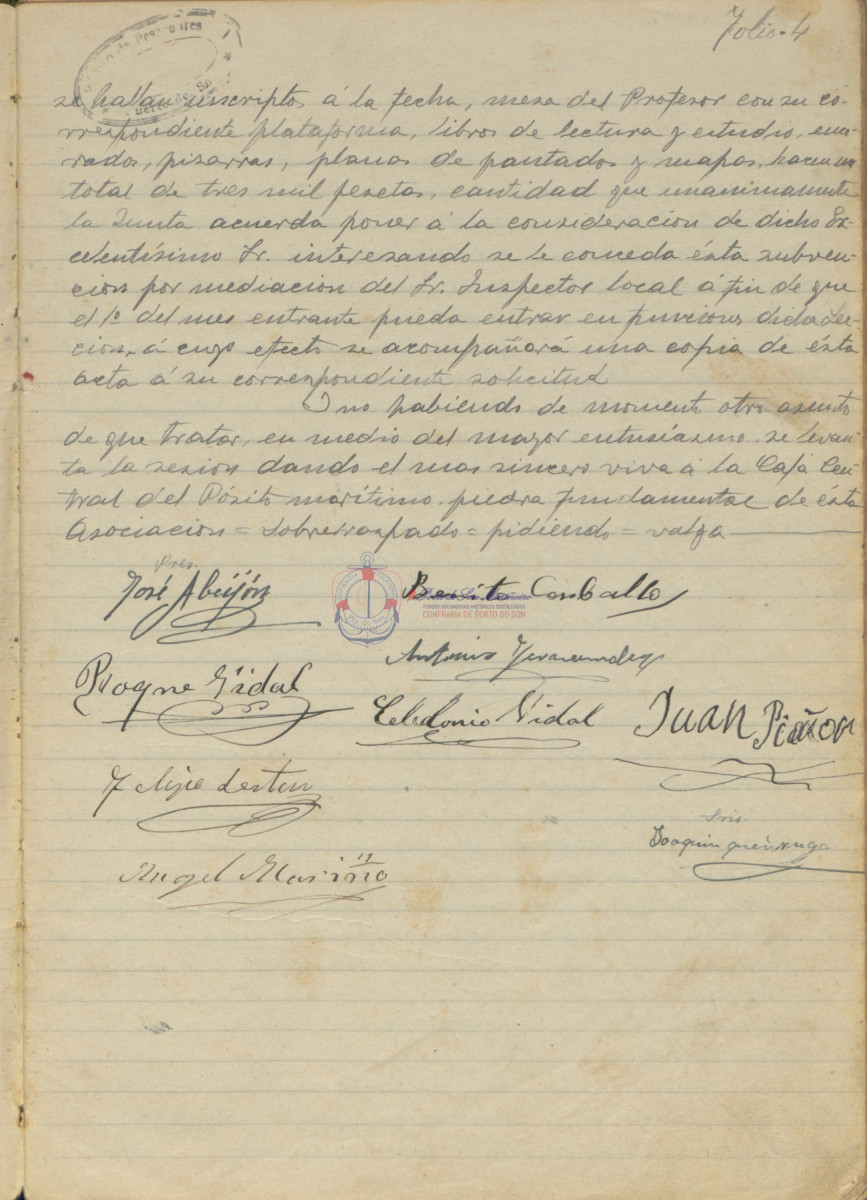 Folio-4
se hallan inscriptos á la fecha, mesa del Profesor con su co-
rrespondiente plataforma, libros de lectura y estudio, ence-
rados, pizarras, planas de pautados y mapas, hacen un
total de tres mil pesetas, cantidad que unanimamente
la Junta acuerda poner á la consideración de dicho Ex-
celentísimo Sr. interesando se le conceda ésta subven-
cion por mediacion del Sr. Inspector local á fin de que
el 1º del mes entrante pueda entrar en funciones dicha Sec-
cion, á cuyo efecto se acompañará una copia de ésta
acta á su correspondiente solicitud
Y no habiendo de momento otro asunto
de que tratar, en medio del mayor entusiasmo se levan-
ta la sesion dando el mas sincero viva á la Caja Cen-
tral del Pósito marítimo piedra fundamental de ésta
Asociacion = Sobrerraspado = pidiendo = valga
Pres.
José Abeijón
Benito Carballo
FONDOS DOCUMENTAIS HISTÓRICOS DIXITALIZADOS
CONFRARÍA DE PORTO DO SON
Antonio Fernandez
Roque Vidal
Celedonio Vidal
Juan Piñon
Felipe Leston
Srio.
Joaquin
Angel Mariño